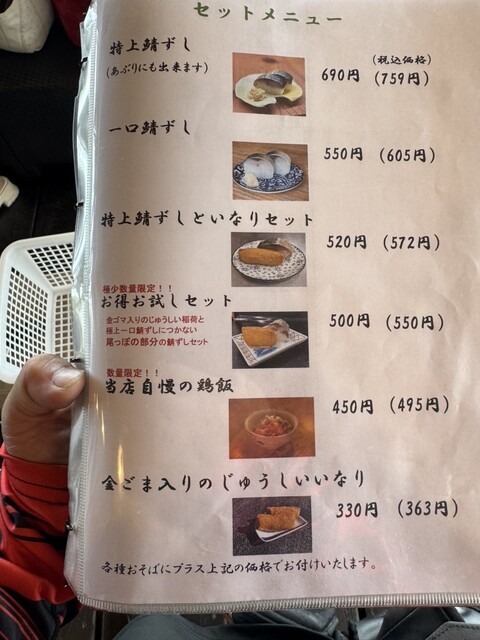 セットメニュー
特上鯖ずし
(あぶりにも出来ます)
(税込価格)
690円 (759円)
一口鯖ずし
550円 (605円)
特上鯖ずしといなりセット
520円 (572円)
極少数量限定！！
お得お試しセット
金ゴマ入りのじゅうしい稲荷と
極上一口鯖ずしにつかない
尾っぽの部分の鯖ずしセット
500円 (550円)
数量限定！！
当店自慢の鶏飯
450円 (495円)
金ごま入りのじゅうしいいなり
330円 (363円)
各種おそばにプラス上記の価格でお付けいたします。